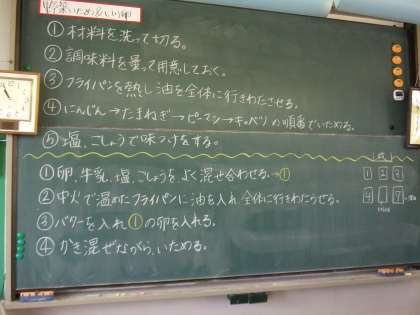 野菜いため・いり卵
① 材料を洗って切る。
② 調味料を量って用意しておく。
③ フライパンを熱し油を全体に行きわたらせる。
④ にんじん→たまねぎ→ピーマン→キャベツの順番でいためる。
⑤ 塩、こしょうで味つけをする。
① 卵、牛乳、塩、こしょうを、よく混ぜ合わせる→①
② 中火で温めたフライパンに油を入れ、全体に行きわたらせる。
③ バターを入れ①の卵を入れる。
④ かき混ぜながら、いためる。
1 2 3
4 7